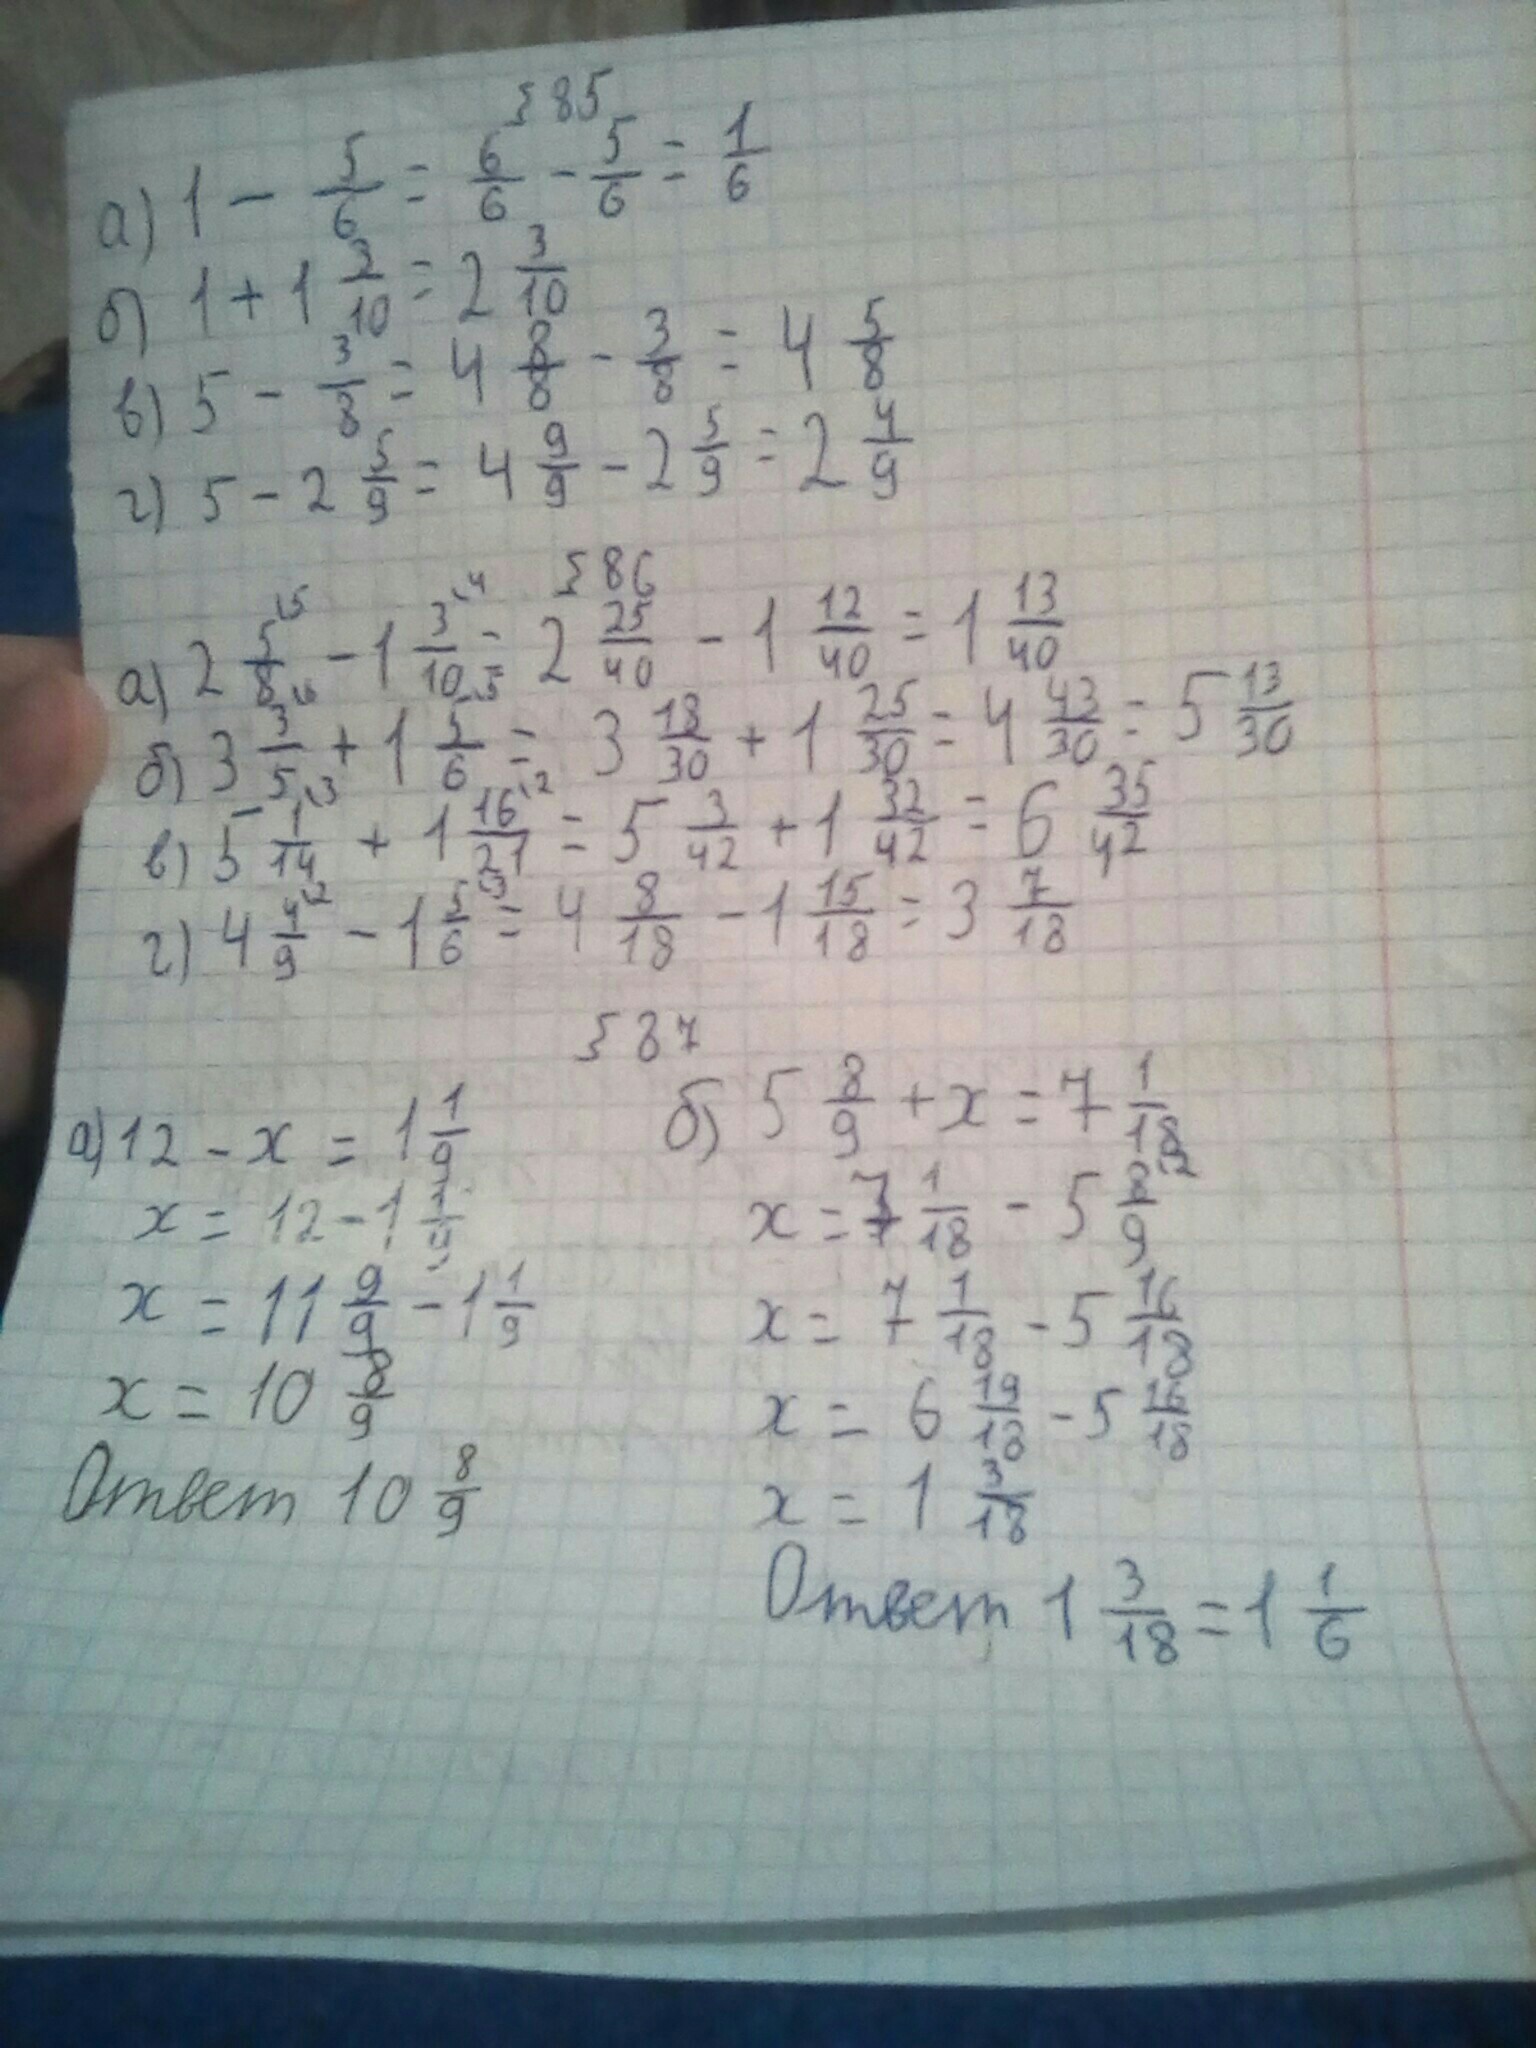 § 85
а) 1 - 5/6 = 6/6 - 5/6 = 1/6
б) 1 + 1 3/10 = 2 3/10
в) 5 - 3/8 = 4 8/8 - 3/8 = 4 5/8
г) 5 - 2 5/9 = 4 9/9 - 2 5/9 = 2 4/9
§ 86
а) 2 5/8 \5 - 1 3/10 \4 = 2 25/40 - 1 12/40 = 1 13/40
б) 3 3/5 \6 + 1 5/6 \5 = 3 18/30 + 1 25/30 = 4 43/30 = 5 13/30
в) 5 1/14 \3 + 1 16/21 \2 = 5 3/42 + 1 32/42 = 6 35/42
г) 4 4/9 \2 - 1 5/6 \3 = 4 8/18 - 1 15/18 = 3 7/18
§ 87
а) 12 - x = 1 1/9
x = 12 - 1 1/9
x = 11 9/9 - 1 1/9
x = 10 8/9
Ответ 10 8/9
б) 5 8/9 + x = 7 1/18
x = 7 1/18 - 5 8/9 \2
x = 7 1/18 - 5 16/18
x = 6 19/18 - 5 16/18
x = 1 3/18
Ответ 1 3/18 = 1 1/6